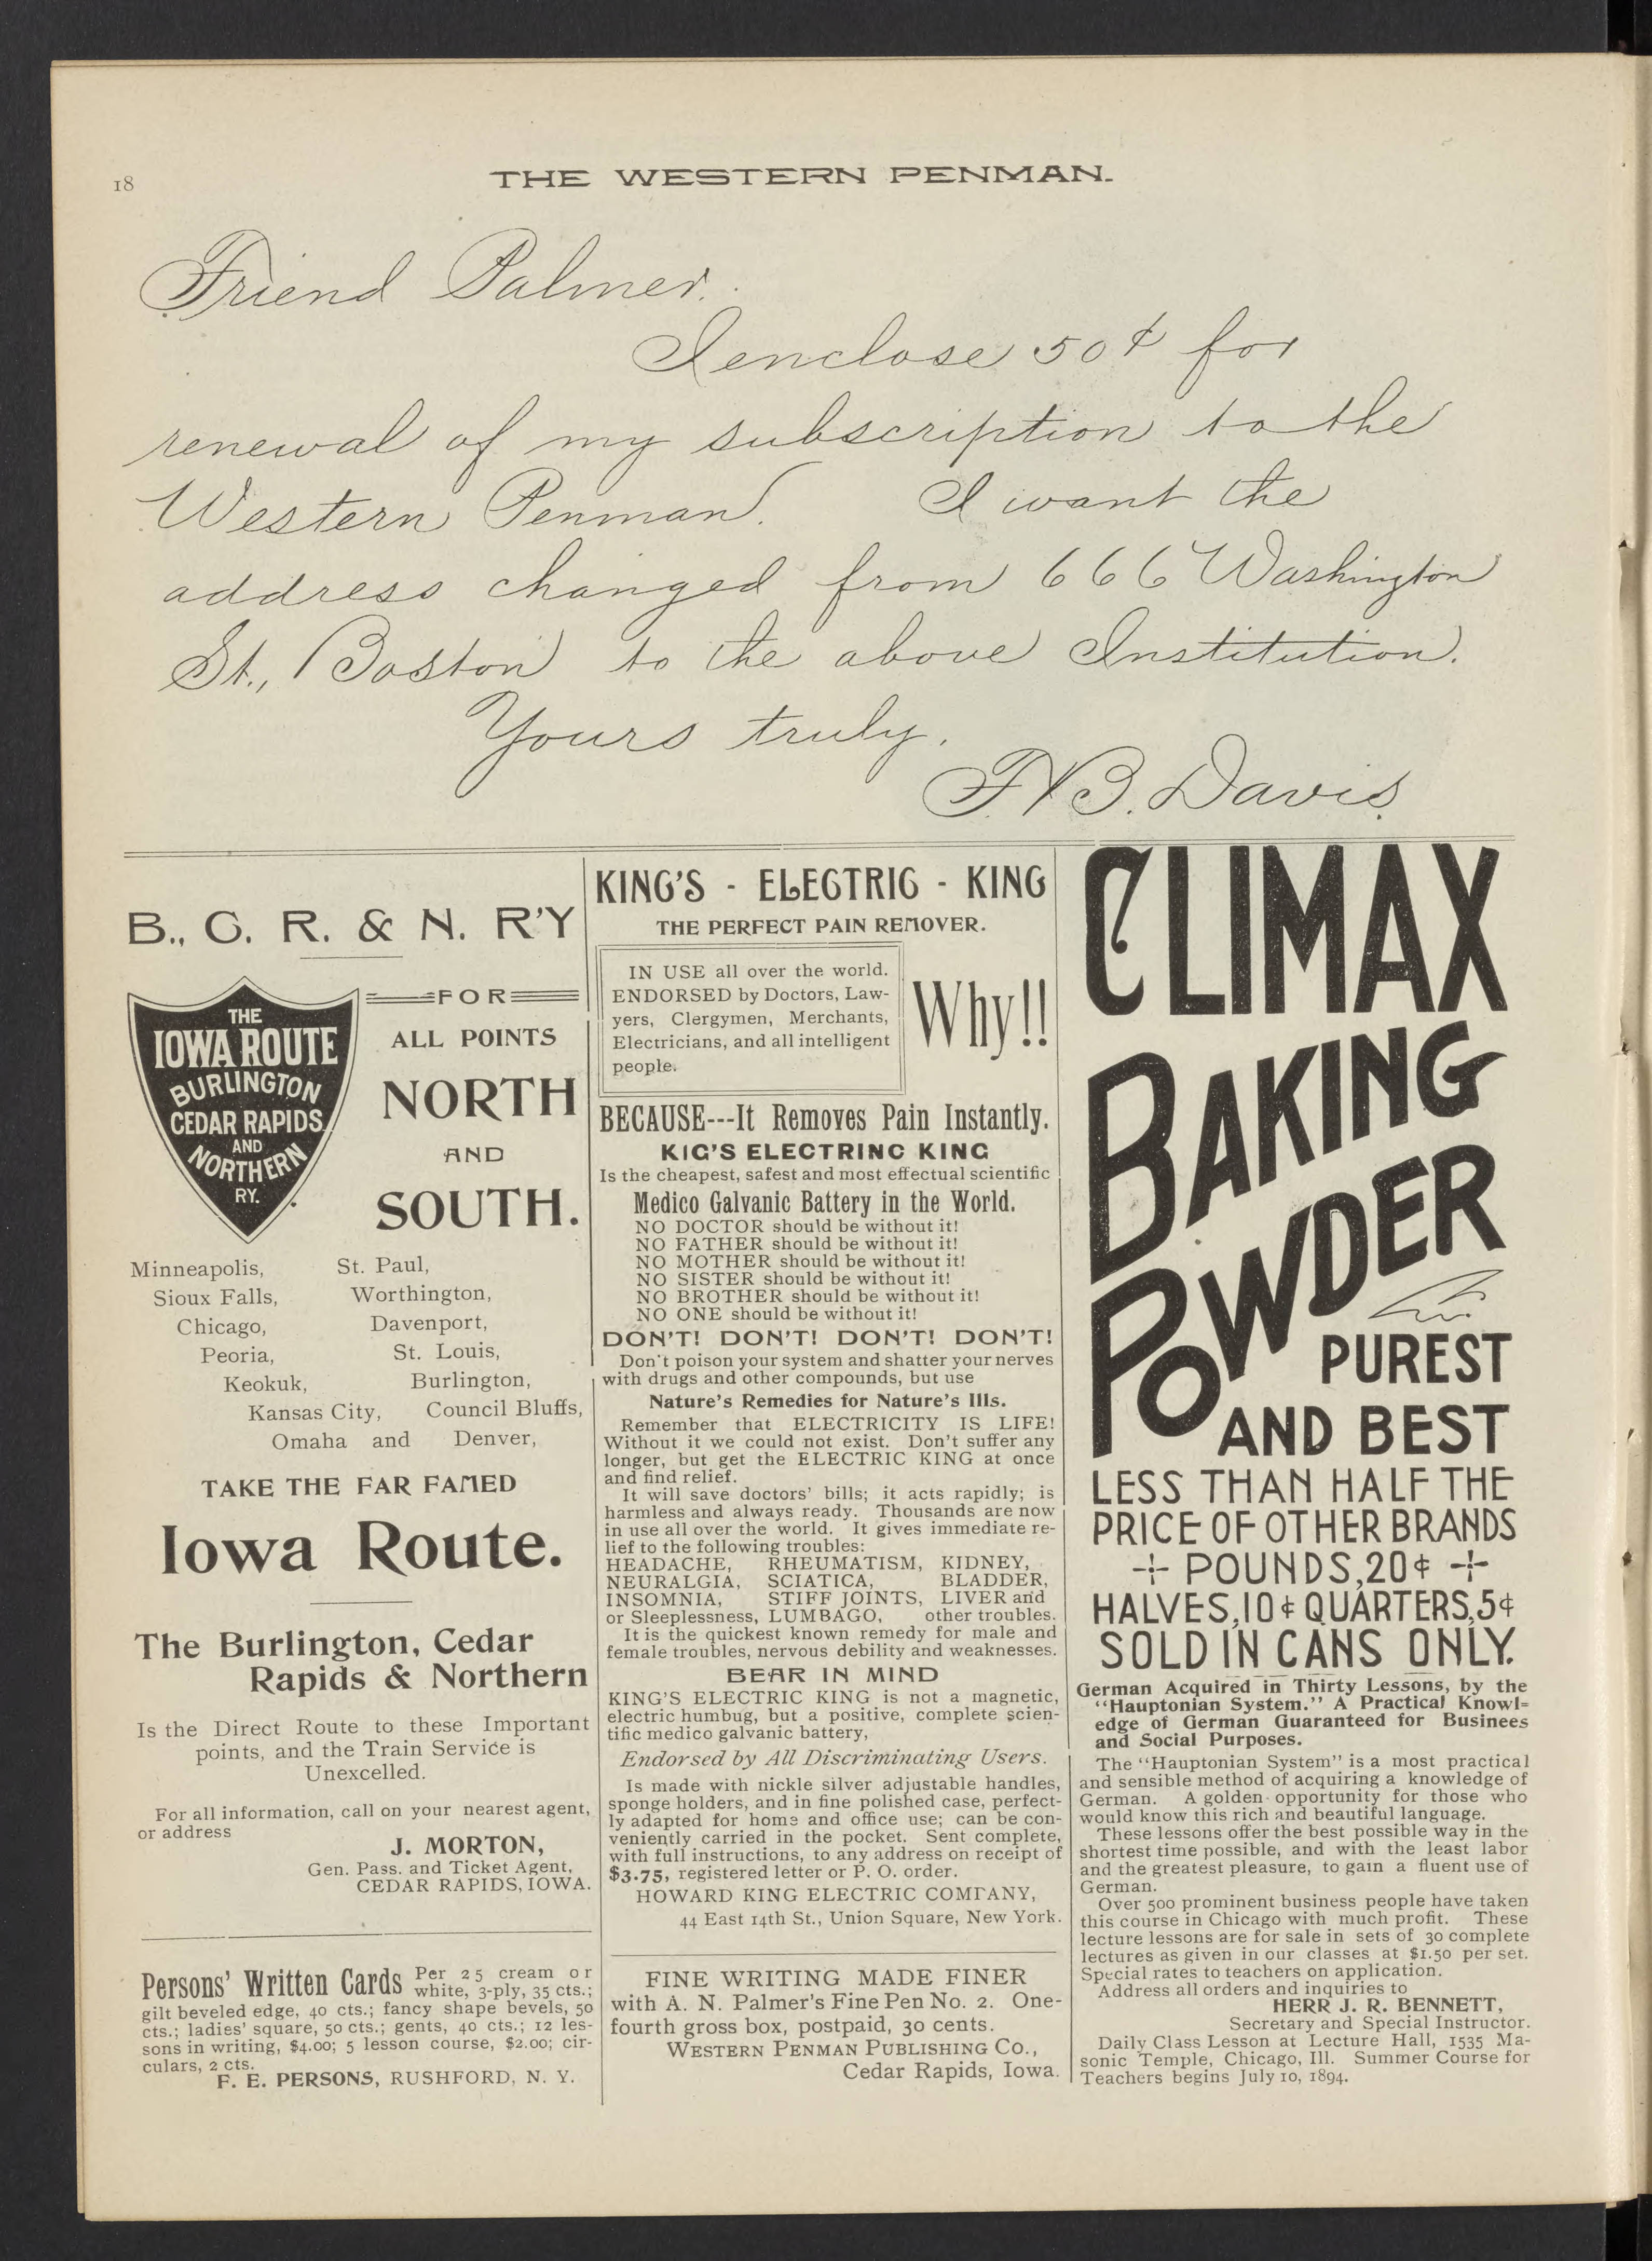 18
THE WESTERN PENMAN.
Friend Palmer.
I enclose 50¢ for
renewal of my subscription to the
Western Penman. I want the
address changed from 666 Washington
St., Boston to the above Institution.
Yours truly,
F. B. Davis.
B., C. R. & N. R'Y
THE
IOWA ROUTE
BURLINGTON
CEDAR RAPIDS
AND
NORTHERN
RY.
FOR
ALL POINTS
NORTH
AND
SOUTH.
Minneapolis, St. Paul,
Sioux Falls, Worthington,
Chicago, Davenport,
Peoria, St. Louis,
Keokuk, Burlington,
Kansas City, Council Bluffs,
Omaha and Denver,
TAKE THE FAR FAMED
Iowa Route.
The Burlington, Cedar
Rapids & Northern
Is the Direct Route to these Important
points, and the Train Service is
Unexcelled.
For all information, call on your nearest agent,
or address
J. MORTON,
Gen. Pass. and Ticket Agent,
CEDAR RAPIDS, IOWA.
Persons' Written Cards Per 25 cream or
white, 3-ply, 35 cts.;
gilt beveled edge, 40 cts.; fancy shape bevels, 50
cts.; ladies' square, 50 cts.; gents, 40 cts.; 12 les-
sons in writing, $4.00; 5 lesson course, $2.00; cir-
culars, 2 cts.
F. E. PERSONS, RUSHFORD, N. Y.
KING'S - ELECTRIC - KING
THE PERFECT PAIN REMOVER.
IN USE all over the world.
ENDORSED by Doctors, Law-
yers, Clergymen, Merchants,
Electricians, and all intelligent
people.
Why!!
BECAUSE---It Removes Pain Instantly.
KIG'S ELECTRINC KING
Is the cheapest, safest and most effectual scientific
Medico Galvanic Battery in the World.
NO DOCTOR should be without it!
NO FATHER should be without it!
NO MOTHER should be without it!
NO SISTER should be without it!
NO BROTHER should be without it!
NO ONE should be without it!
DON'T! DON'T! DON'T! DON'T!
Don't poison your system and shatter your nerves
with drugs and other compounds, but use
Nature's Remedies for Nature's Ills.
Remember that ELECTRICITY IS LIFE!
Without it we could not exist. Don't suffer any
longer, but get the ELECTRIC KING at once
and find relief.
It will save doctors' bills; it acts rapidly; is
harmless and always ready. Thousands are now
in use all over the world. It gives immediate re-
lief to the following troubles:
HEADACHE, RHEUMATISM, KIDNEY,
NEURALGIA, SCIATICA, BLADDER,
INSOMNIA, STIFF JOINTS, LIVER and
or Sleeplessness, LUMBAGO, other troubles.
It is the quickest known remedy for male and
female troubles, nervous debility and weaknesses.
BEAR IN MIND
KING'S ELECTRIC KING is not a magnetic,
electric humbug, but a positive, complete scien-
tific medico galvanic battery,
Endorsed by All Discriminating Users.
Is made with nickle silver adjustable handles,
sponge holders, and in fine polished case, perfect-
ly adapted for home and office use; can be con-
veniently carried in the pocket. Sent complete,
with full instructions, to any address on receipt of
$3.75, registered letter or P. O. order.
HOWARD KING ELECTRIC COMPANY,
44 East 14th St., Union Square, New York.
FINE WRITING MADE FINER
with A. N. Palmer's Fine Pen No. 2. One-
fourth gross box, postpaid, 30 cents.
WESTERN PENMAN PUBLISHING CO.,
Cedar Rapids, Iowa.
CLIMAX
BAKING
POWDER
PUREST
AND BEST
LESS THAN HALF THE
PRICE OF OTHER BRANDS
POUNDS, 20¢
HALVES, 10¢ QUARTERS, 5¢
SOLD IN CANS ONLY.
German Acquired in Thirty Lessons, by the
"Hauptonian System." A Practical Knowl-
edge of German Guaranteed for Businees
and Social Purposes.
The "Hauptonian System" is a most practical
and sensible method of acquiring a knowledge of
German. A golden opportunity for those who
would know this rich and beautiful language.
These lessons offer the best possible way in the
shortest time possible, and with the least labor
and the greatest pleasure, to gain a fluent use of
German.
Over 500 prominent business people have taken
this course in Chicago with much profit. These
lecture lessons are for sale in sets of 30 complete
lectures as given in our classes at $1.50 per set.
Special rates to teachers on application.
Address all orders and inquiries to
HERR J. R. BENNETT,
Secretary and Special Instructor.
Daily Class Lesson at Lecture Hall, 1535 Ma-
sonic Temple, Chicago, Ill. Summer Course for
Teachers begins July 10, 1894.